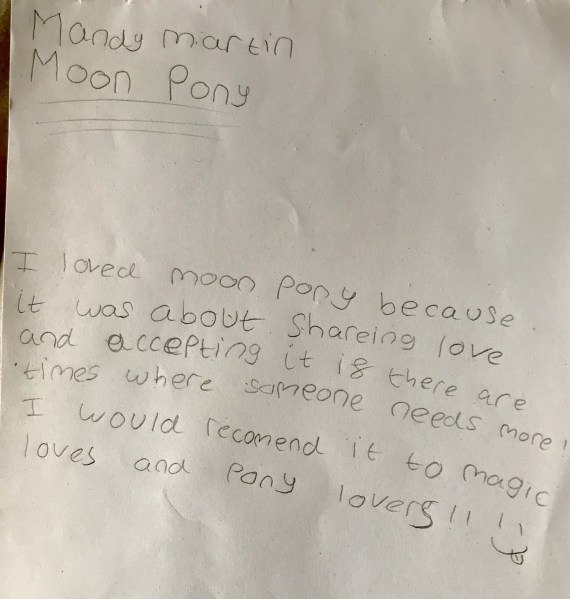 Mandy martin
Moon Pony
I loved moon pony because
it was about Shareing love
and accepting it if there are
times where someone needs more!
I would recomend it to magic
loves and pony lovers!!